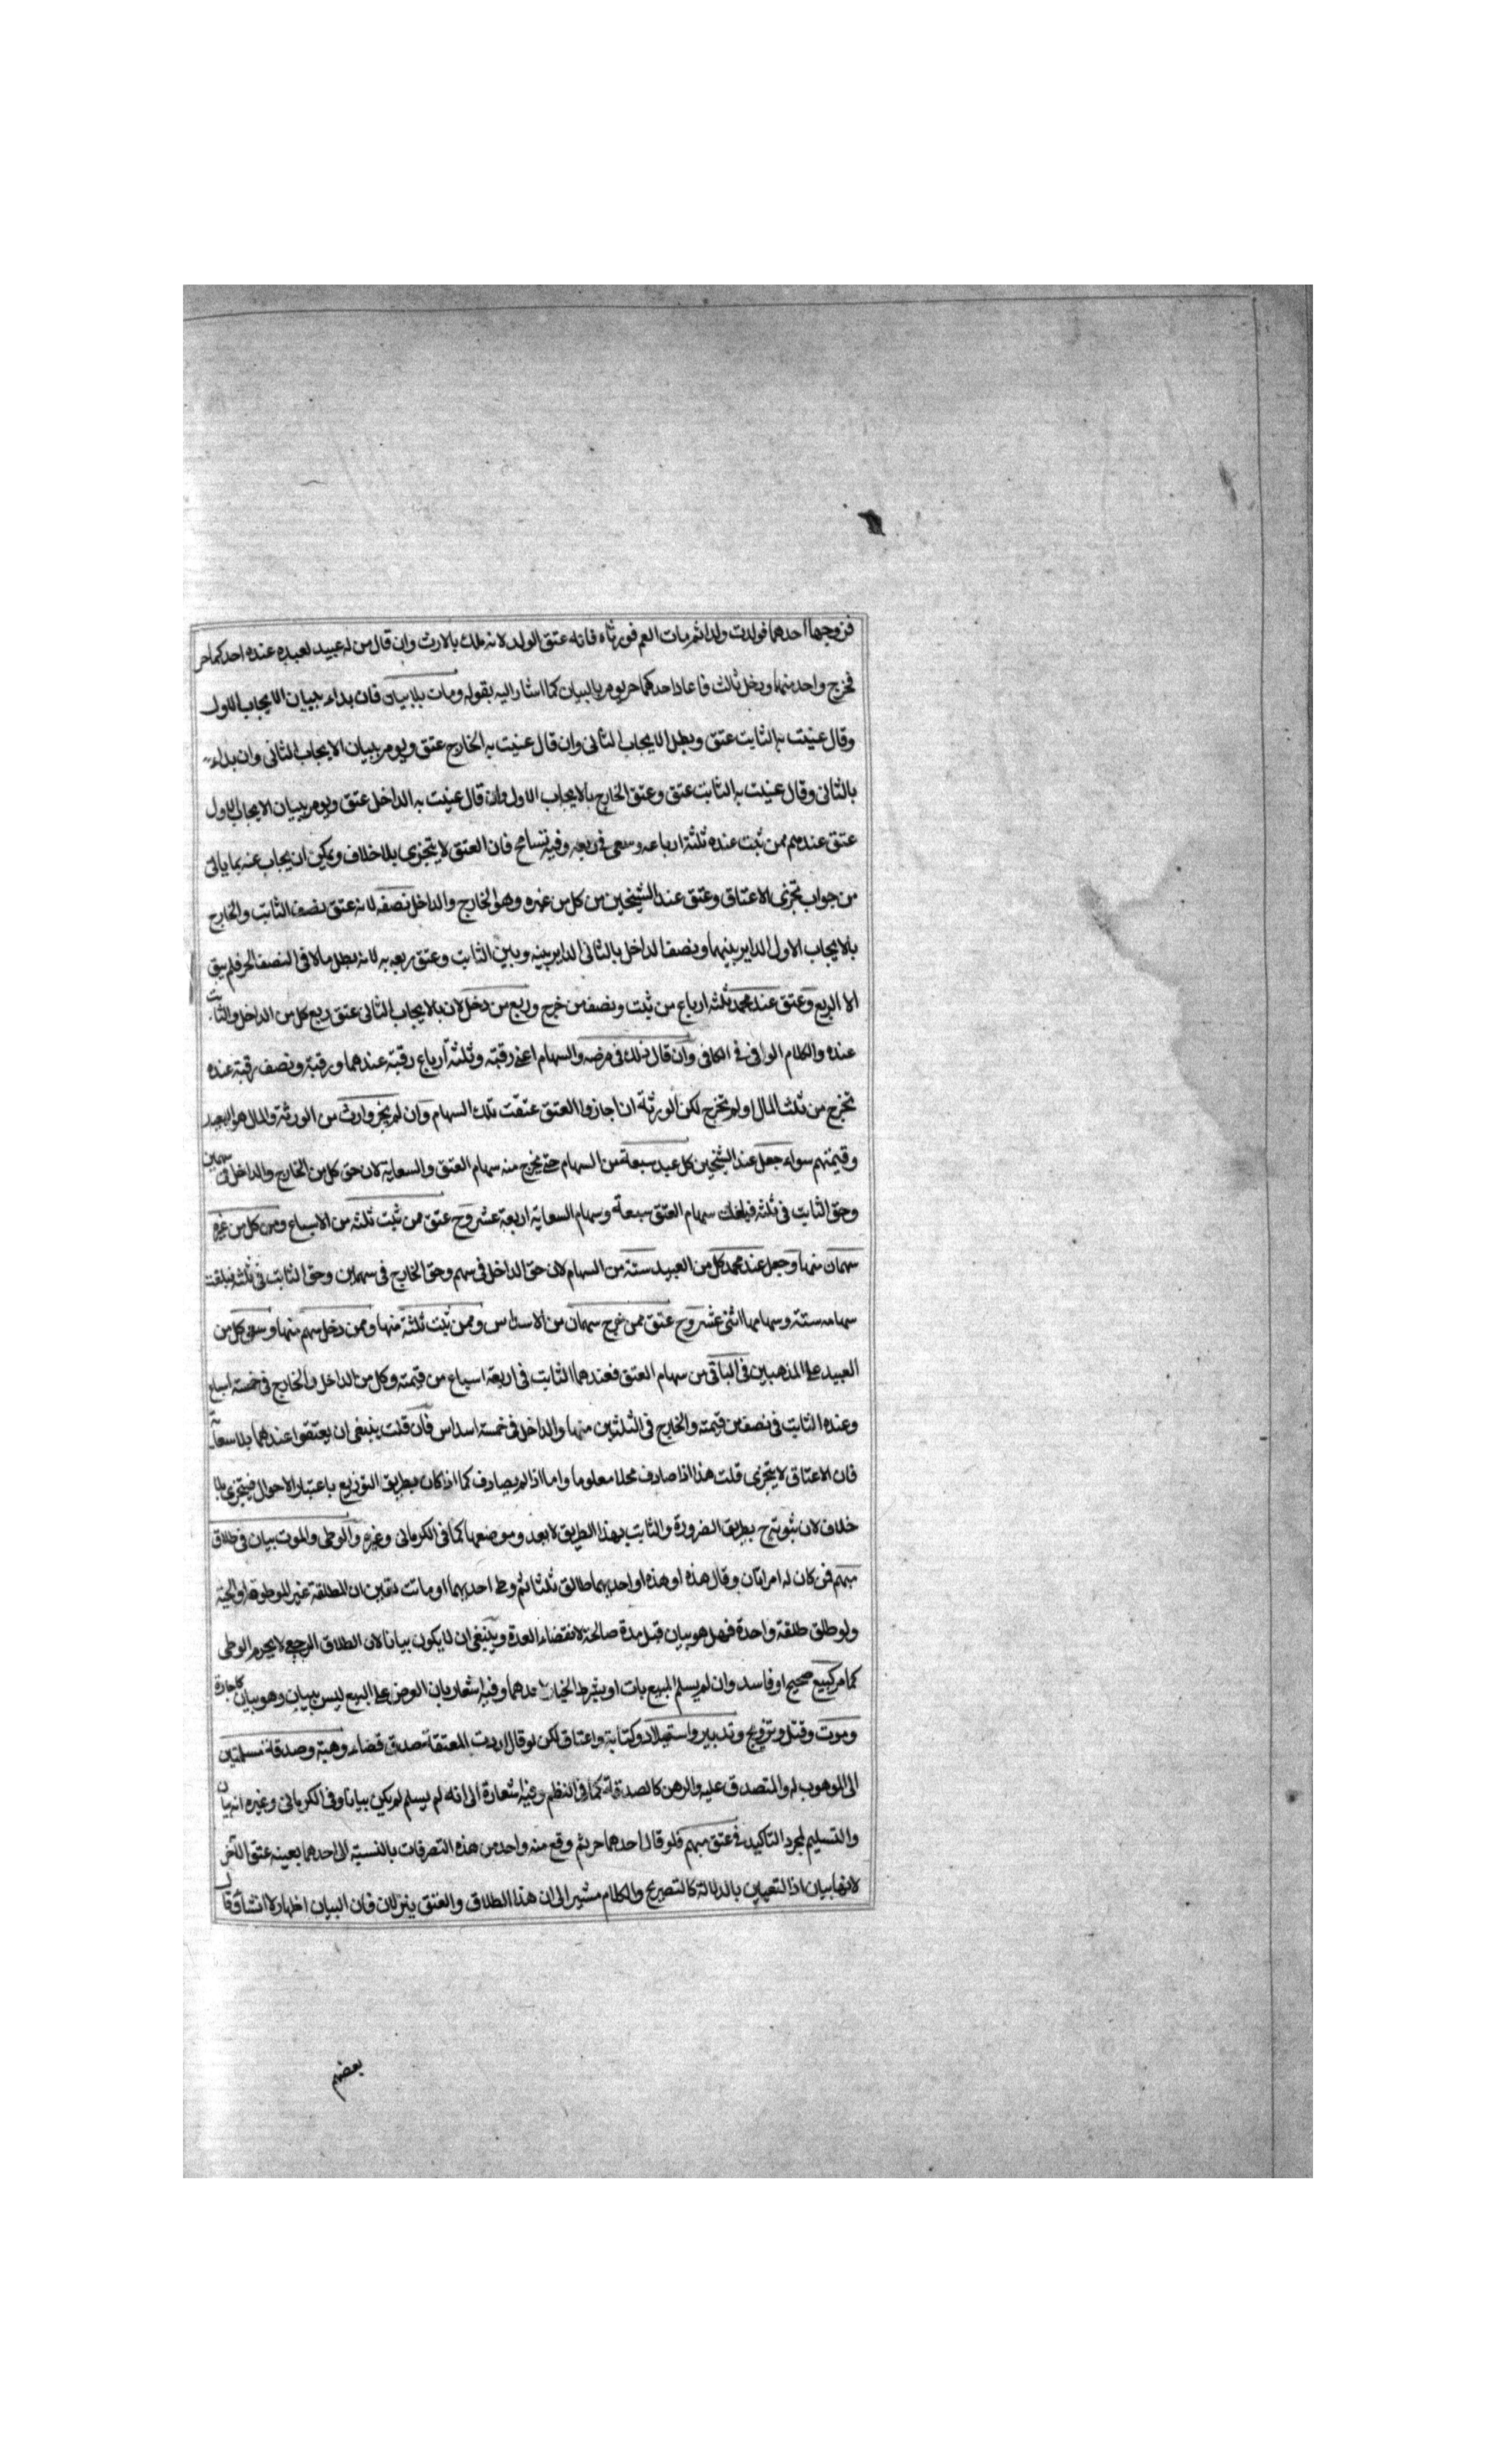 فزوجها احدهما فولدت ولدا ثم مات العم فورثاه فانه عتق الولد لانه ملك بالارث وان قال من له عبيد لعبديه عنده احدكما حر
فخرج واحد منهما ودخل ثالث فاعاد احدكما حر يومر بالبيان كما اشار اليه بقوله ومات بلا بيان فان بداء ببيان الايجاب الاول
وقال عنيت به الثابت عتق وبطل الايجاب الثاني وان قال عنيت به الخارج عتق ويومر ببيان الايجاب الثاني وان بداء
بالثاني وقال عنيت به الثابت عتق وعتق الخارج بالايجاب الاول وان قال عنيت به الداخل عتق ويومر ببيان الايجاب الاول
عتق عندهم ممن ثبت عنده ثلثة ارباعه وسعى في ربعه وفيه تسامح فان العتق لا يتجزى بلا خلاف ويمكن ان يجاب عنه بما ياتى
من جواب تجزى الاعتاق وعتق عند الشيخين من كل من غيره وهو الخارج والداخل نصفه لانه عتق نصف الثابت والخارج
بالايجاب الاول الداير بينهما ونصف الداخل بالثاني الداير بينه وبين الثابت وعتق ربعه به لانه بطل ما لاقى النصف الحر فلم يبق
الا الربع وعتق عند محمد ثلثة ارباع من ثبت ونصف من خرج وربع من دخل لان بالايجاب الثاني عتق ربع كل من الداخل والثابت
عنده والكلام الوافى في الكافى وان قال ذلك في مرضه والسهام اعنى رقبته وثلثة ارباع رقبة عندهما ورقبة ونصف رقبة عنده
تخرج من ثلث المال او لم تخرج لكن الورثة اجازوا العتق عتقت تلك السهام وان لم يجز وارث من الورثة والمال هو العبيد
وقيمتهم سواء جعل عند الشيخين كل عبد سبعة من السهام حتى يخرج منه سهام العتق والسعاية لان حق كل من الخارج والداخل في سهمين
وحق الثابت في ثلثة فبلغت سهام العتق سبعة وسهام السعاية اربعة عشر وح عتق ممن ثبت ثلثة من الاسباع ومن كل من غيره
سهمان منها وجعل عند محمد كل من العبيد ستة من السهام لان حق الداخل في سهم وحق الخارج في سهمين وحق الثابت في ثلثة فبلغت
سهامه ستة وسهامها اثنى عشر وح عتق ممن خرج سهمان من الاسداس وممن ثبت ثلثة منها وممن دخل سهم منها وسعى كل من
العبيد على المذهبين في الباقى من سهام العتق فعندهما الثابت في اربعة اسباع من قيمته وكل من الداخل والخارج في خمسة اسباع
وعنده الثابت في نصف من قيمته والخارج في الثلثين منها والداخل في خمسة اسداس فان قلت ينبغى ان يعتقوا عندهما بلا سعاية
فان الاعتاق لا يتجزى قلت هذا اذا صادف محلا معلوما واما اذا لم يصادف كما اذا كان بطريق التوزيع باعتبار الاحوال فيتجزى بلا
خلاف لان ثبوته ح بطريق الضرورة والثابت بهذا الطريق لا يعدو موضعها كما في الكرمانى وغيره والوطى والموت بيان في طلاق
مبهم فمن كان له امراتان وقال هذه او هذه او احديهما طالق ثلثا ثم وطى احديهما او ماتت تعين ان المطلقة غير الموطوة او الحية
ولو طلق طلقة واحدة فهل هو بيان قبل مدة صالحة لانقضاء العدة وينبغى ان لا يكون بيانا لان الطلاق الرجعى لا يحرم الوطى
كما مر كبيع صحيح او فاسد وان لم يسلم المبيع بات او بشرط الخيار لاحدهما وفيه اشعار بان العرض على البيع ليس ببيان وهو بيان كاجارة
وموت وقتل وتزويج وتدبير واستيلاد وكتابة واعتاق لكن لو قال اردت المعتقة صدق قضاء وهبة وصدقة مسلمتين
الى الموهوب له والمتصدق عليه والرهن كالصدقة كما في النظم وفيه اشعارة الى انه لم يسلم لم يكن بيانا وفى الكرمانى وغيره انه بيان
والتسليم لمجرد التاكيد في عتق مبهم فلو قال احدهما حر ثم وقع منه واحد من هذه التصرفات بالنسبة الى احدهما بعينه عتق الآخر
لانها بيان اذ التعيين بالدلالة كالتصريح والكلام مشير الى ان هذا الطلاق والعتق ينزلان فان البيان اظهار لا انشأ وقال
بعضهم